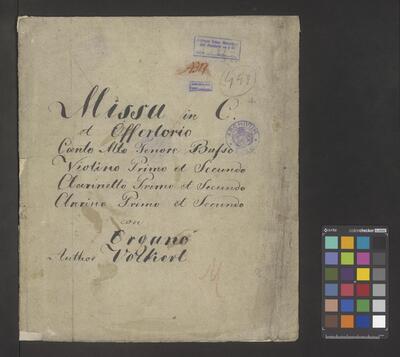 Missa in C.
et Offertorio
Canto Alto Tenore Basso
Violino Primo et Secundo
Clarinetto Primo et Secundo
Clarino Primo et Secundo
con
Organo
Author Volkert